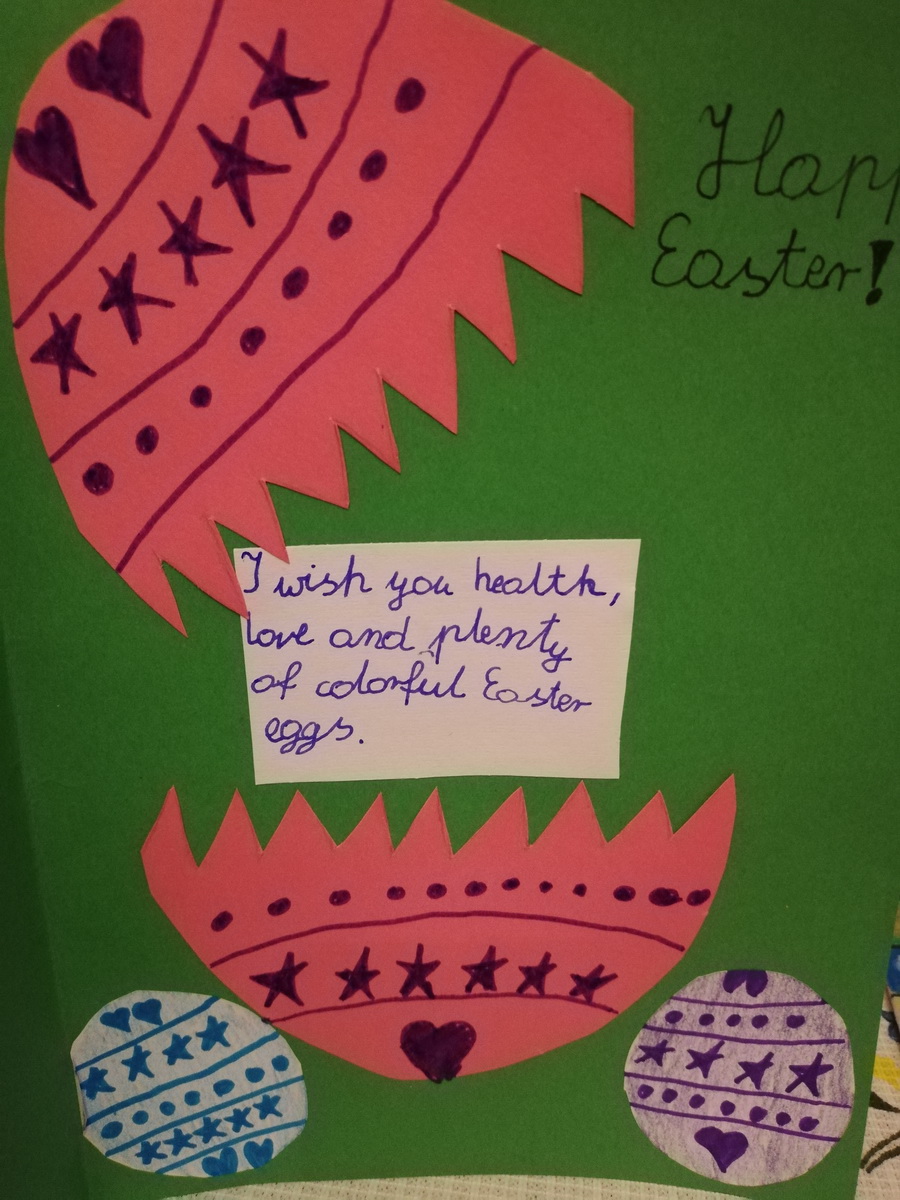 Happ
Easter!
I wish you health,
love and plenty
of colorful Easter
eggs.